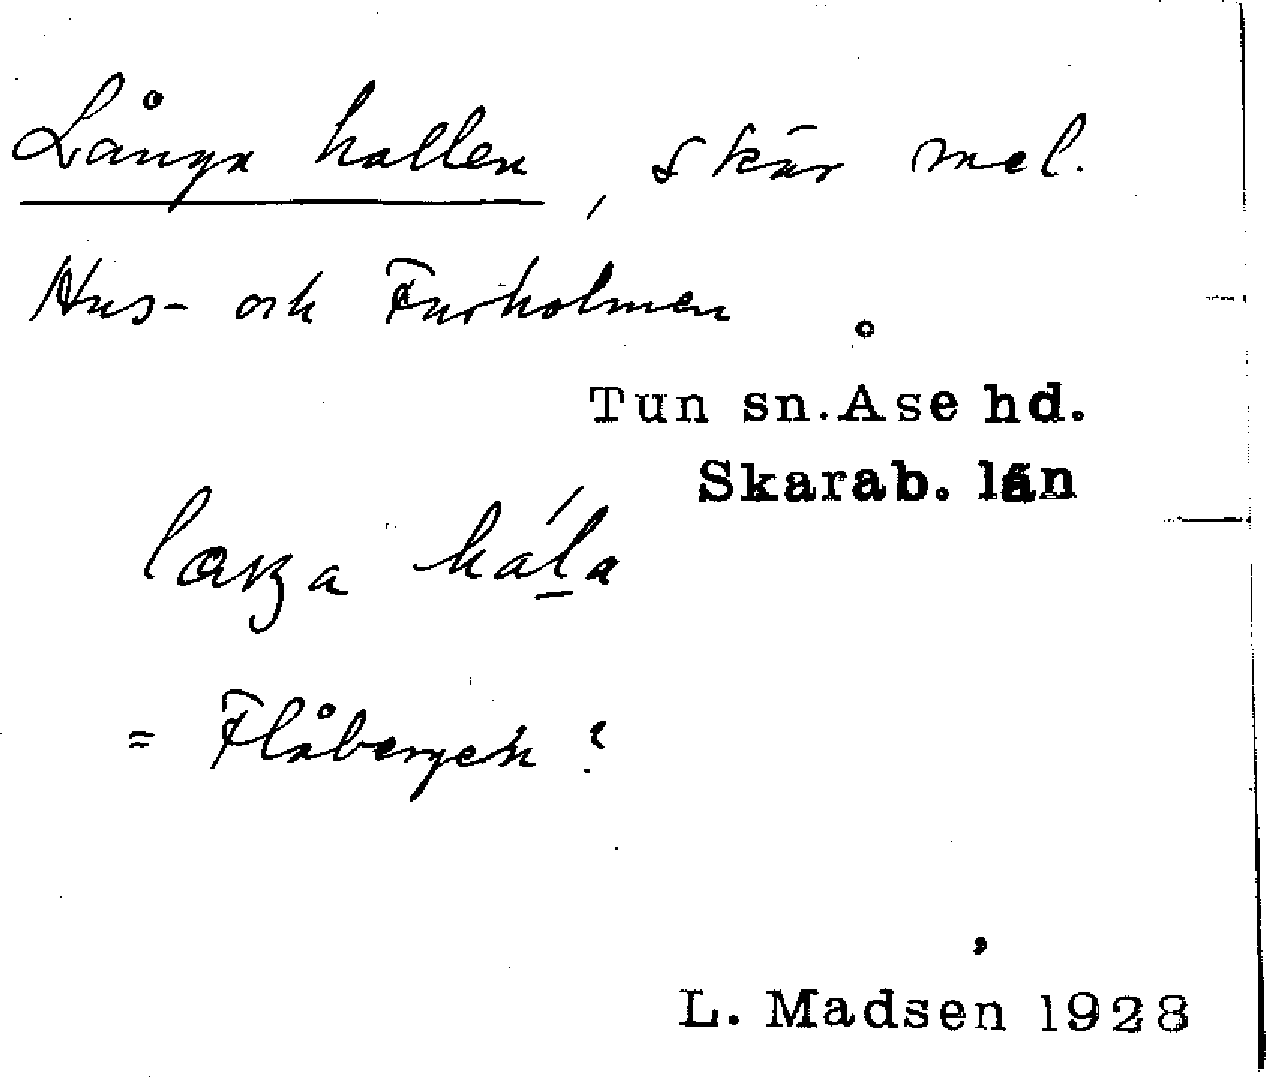 Långa hallen, skär mel.
Hus- och Furholmen
Tun sn. Åse hd.
Skarab. län
hála
= Flåbergen ?
L. Madsen 1928